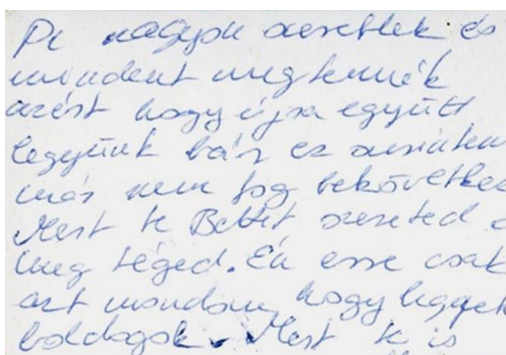 De nagyon szeretlek és
mindent megtennék
azért hogy újra együtt
legyünk bár ez szerintem
már nem fog bekövetkez
Mert te Bettit szereted ő
meg téged. Én erre csak
azt mondom, hogy legyet
boldogok. Mert te is